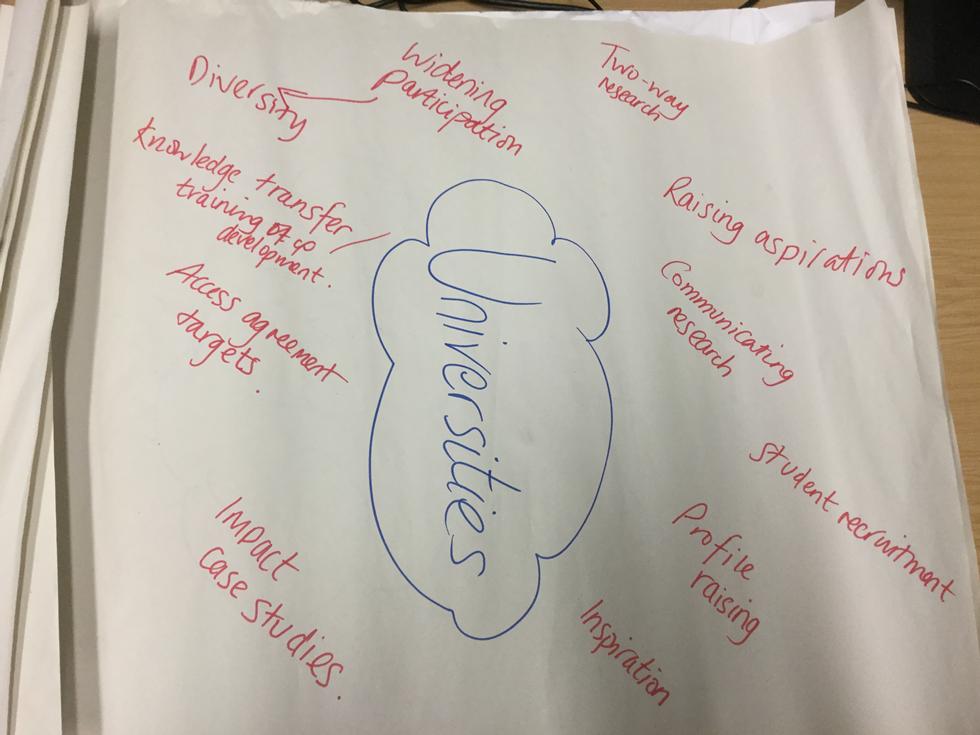 Diversity
Widening
participation
Two-way
research
Knowledge transfer /
training
development.
Raising aspirations
Access agreement
targets.
Communicating
research
Universities
Student recruitment
Impact
case studies.
Profile
raising
Inspiration